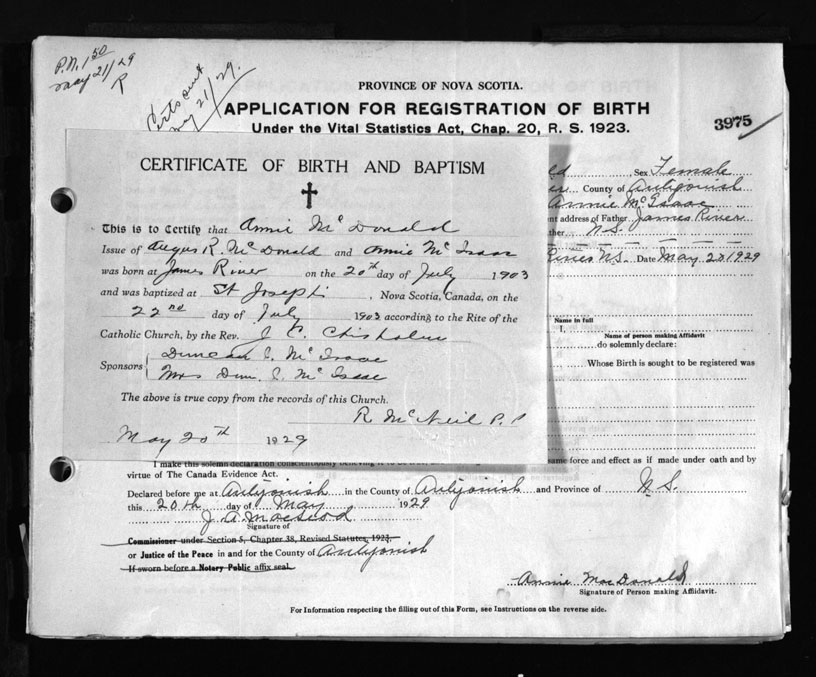 P.N. 1 50
May 21/29
R
Certs sent
May 21/29.
PROVINCE OF NOVA SCOTIA.
APPLICATION FOR REGISTRATION OF BIRTH
Under the Vital Statistics Act, Chap. 20, R. S. 1923.
3975
ld, Sex Female
County of Antigonish
Annie McIsaac
nt address of Father James River
ther N.S.
River N.S. Date May 20 1929
Name in full
I,
Name of person making Affidavit
do solemnly declare:
Whose Birth is sought to be registered was
CERTIFICATE OF BIRTH AND BAPTISM
This is to Certify that Annie McDonald
Issue of Angus R. McDonald and Annie McIsaac
was born at James River on the 20th day of July 1903
and was baptized at St Josephs, Nova Scotia, Canada, on the
22nd day of July 1903 according to the Rite of the
Catholic Church, by the Rev. J. C. Chisholm
Sponsors Duncan C. McIsaac
Mrs Dun. C. McIsaac
The above is true copy from the records of this Church.
R. McNeil P.P.
May 20th 1929
same force and effect as if made under oath and by
I make this solemn declaration conscientiously believing it to be true,
virtue of The Canada Evidence Act.
Declared before me at Antigonish in the County of Antigonish and Province of N.S.
this 20th day of May 1929
J. A. MacLeod
Signature of
Commissioner under Section 5, Chapter 38, Revised Statutes, 1923,
or Justice of the Peace in and for the County of Antigonish
If sworn before a Notary Public affix seal.
Annie MacDonald
Signature of Person making Affidavit.
For Information respecting the filling out of this Form, see Instructions on the reverse side.